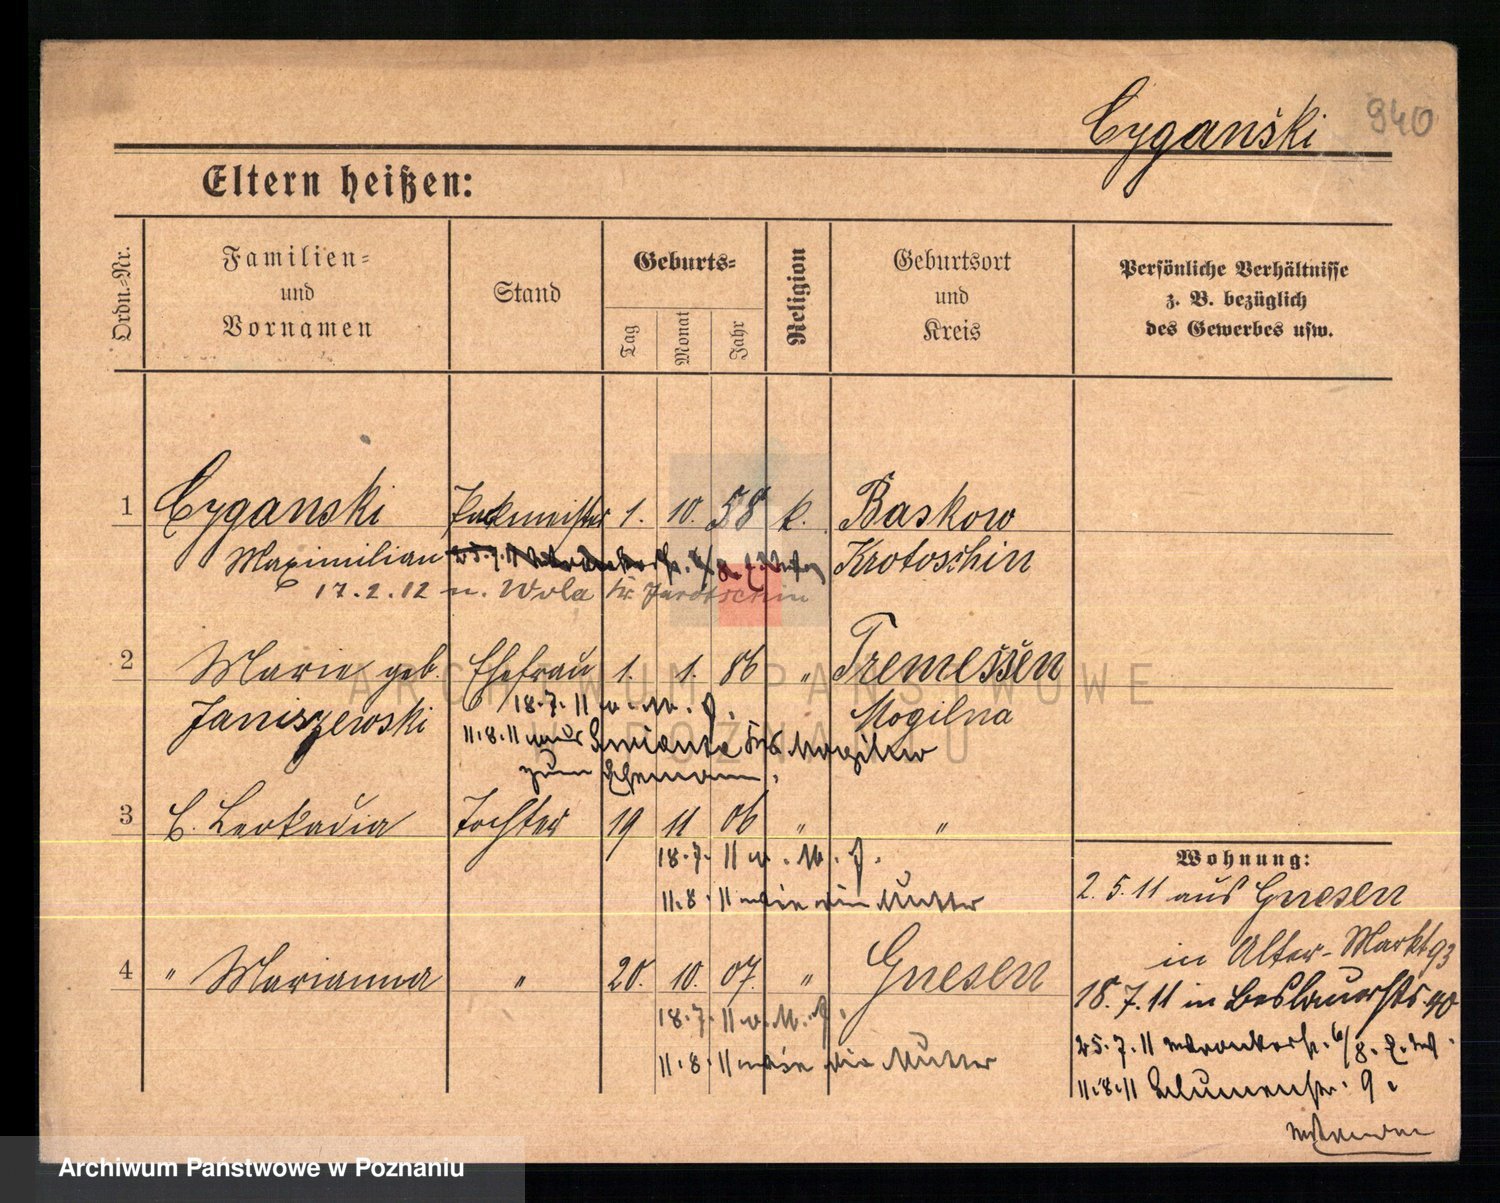 Cyganski 940
Eltern heißen:
Ordn.-Nr.
Familien-
und
Vornamen
Stand
Geburts-
Tag
Monat
Jahr
Religion
Geburtsort
und
Kreis
Persönliche Verhältnisse
z. B. bezüglich
des Gewerbes usw.
1 Cyganski Packmeister 1. 10. 58 k. Baskow
Maximilian Krotoschin
17.2.12 n. Wola Kr. Jarotschin
2 Marie geb. Ehefrau 1. 1. 86 " Tremessen
Janiszewski Mogilna
18.7.11
11.8.11 aus
zum Ehemann.
3 C. Leokadia Tochter 19 11 06 " "
18.7.11
11.8.11 wie die Mutter
4 " Marianna " 20. 10. 07. " Gnesen
18.7.11
11.8.11 wie die Mutter
Wohnung:
2.5.11 aus Gnesen
in Alter-Markt 93
18.7.11 in
25.7.11
11.8.11 Blumenstr. 9
ARCHIWUM PAŃSTWOWE
W POZNANIU
Archiwum Państwowe w Poznaniu